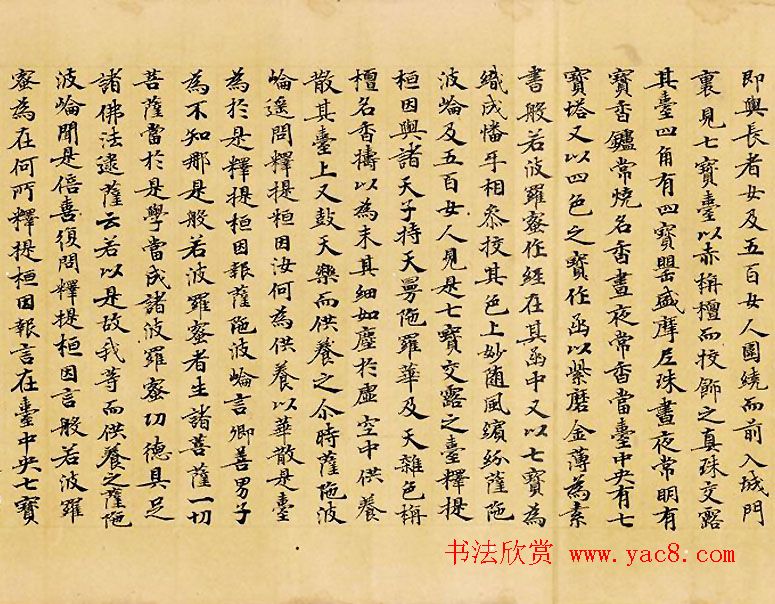 即與長者女及五百女人圍繞而前入城門
裏見七寶臺以赤栴檀而挍飾之真珠交露
其臺四角有四寶甖盛摩尼珠晝夜常明有
寶香鑪常燒名香晝夜常香當臺中央有七
寶塔又以四色之寶作函以紫磨金薄為素
書般若波羅蜜作經在其函中又以七寶為
織成幡㸦相叅挍其色上妙隨風繽紛薩陁
波崘及五百女人見是七寶交露之臺釋提
桓因與諸天子持天曼陁羅華及天雜色栴
檀名香擣以為末其細如塵於虛空中供養
散其臺上又鼓天樂而供養之尒時薩陁波
崘遥問釋提桓因汝何為供養以華散是臺
為於是釋提桓因報薩陁波崘言卿善男子
為不知耶是般若波羅蜜者生諸菩薩一切
菩薩當於是學當成諸波羅蜜功德具足
諸佛法逮薩云若以是故我等而供養之薩陁
波崘聞是倍喜復問釋提桓因言般若波羅
蜜為在何所釋提桓因報言在臺中央七寶
书法欣赏 www.yac8.com